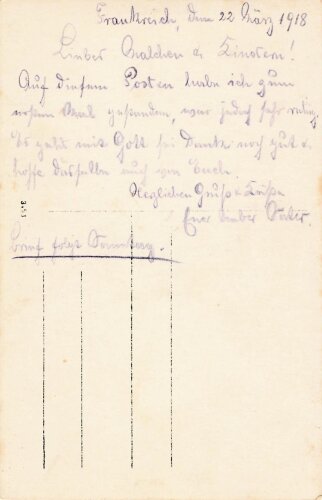 Frankreich, den 22 März 1918
Lieber Malchen & Kindern!
Auf diesem Posten habe ich zum
ersten Mal gestanden, war jedoch sehr ruhig.
Es geht mir Gott sei Dank noch gut &
hoffe dasselbe auch von Euch.
Herzlichen Gruß & Küße
Euer lieber Vater.
Brief folgt Sonntag.